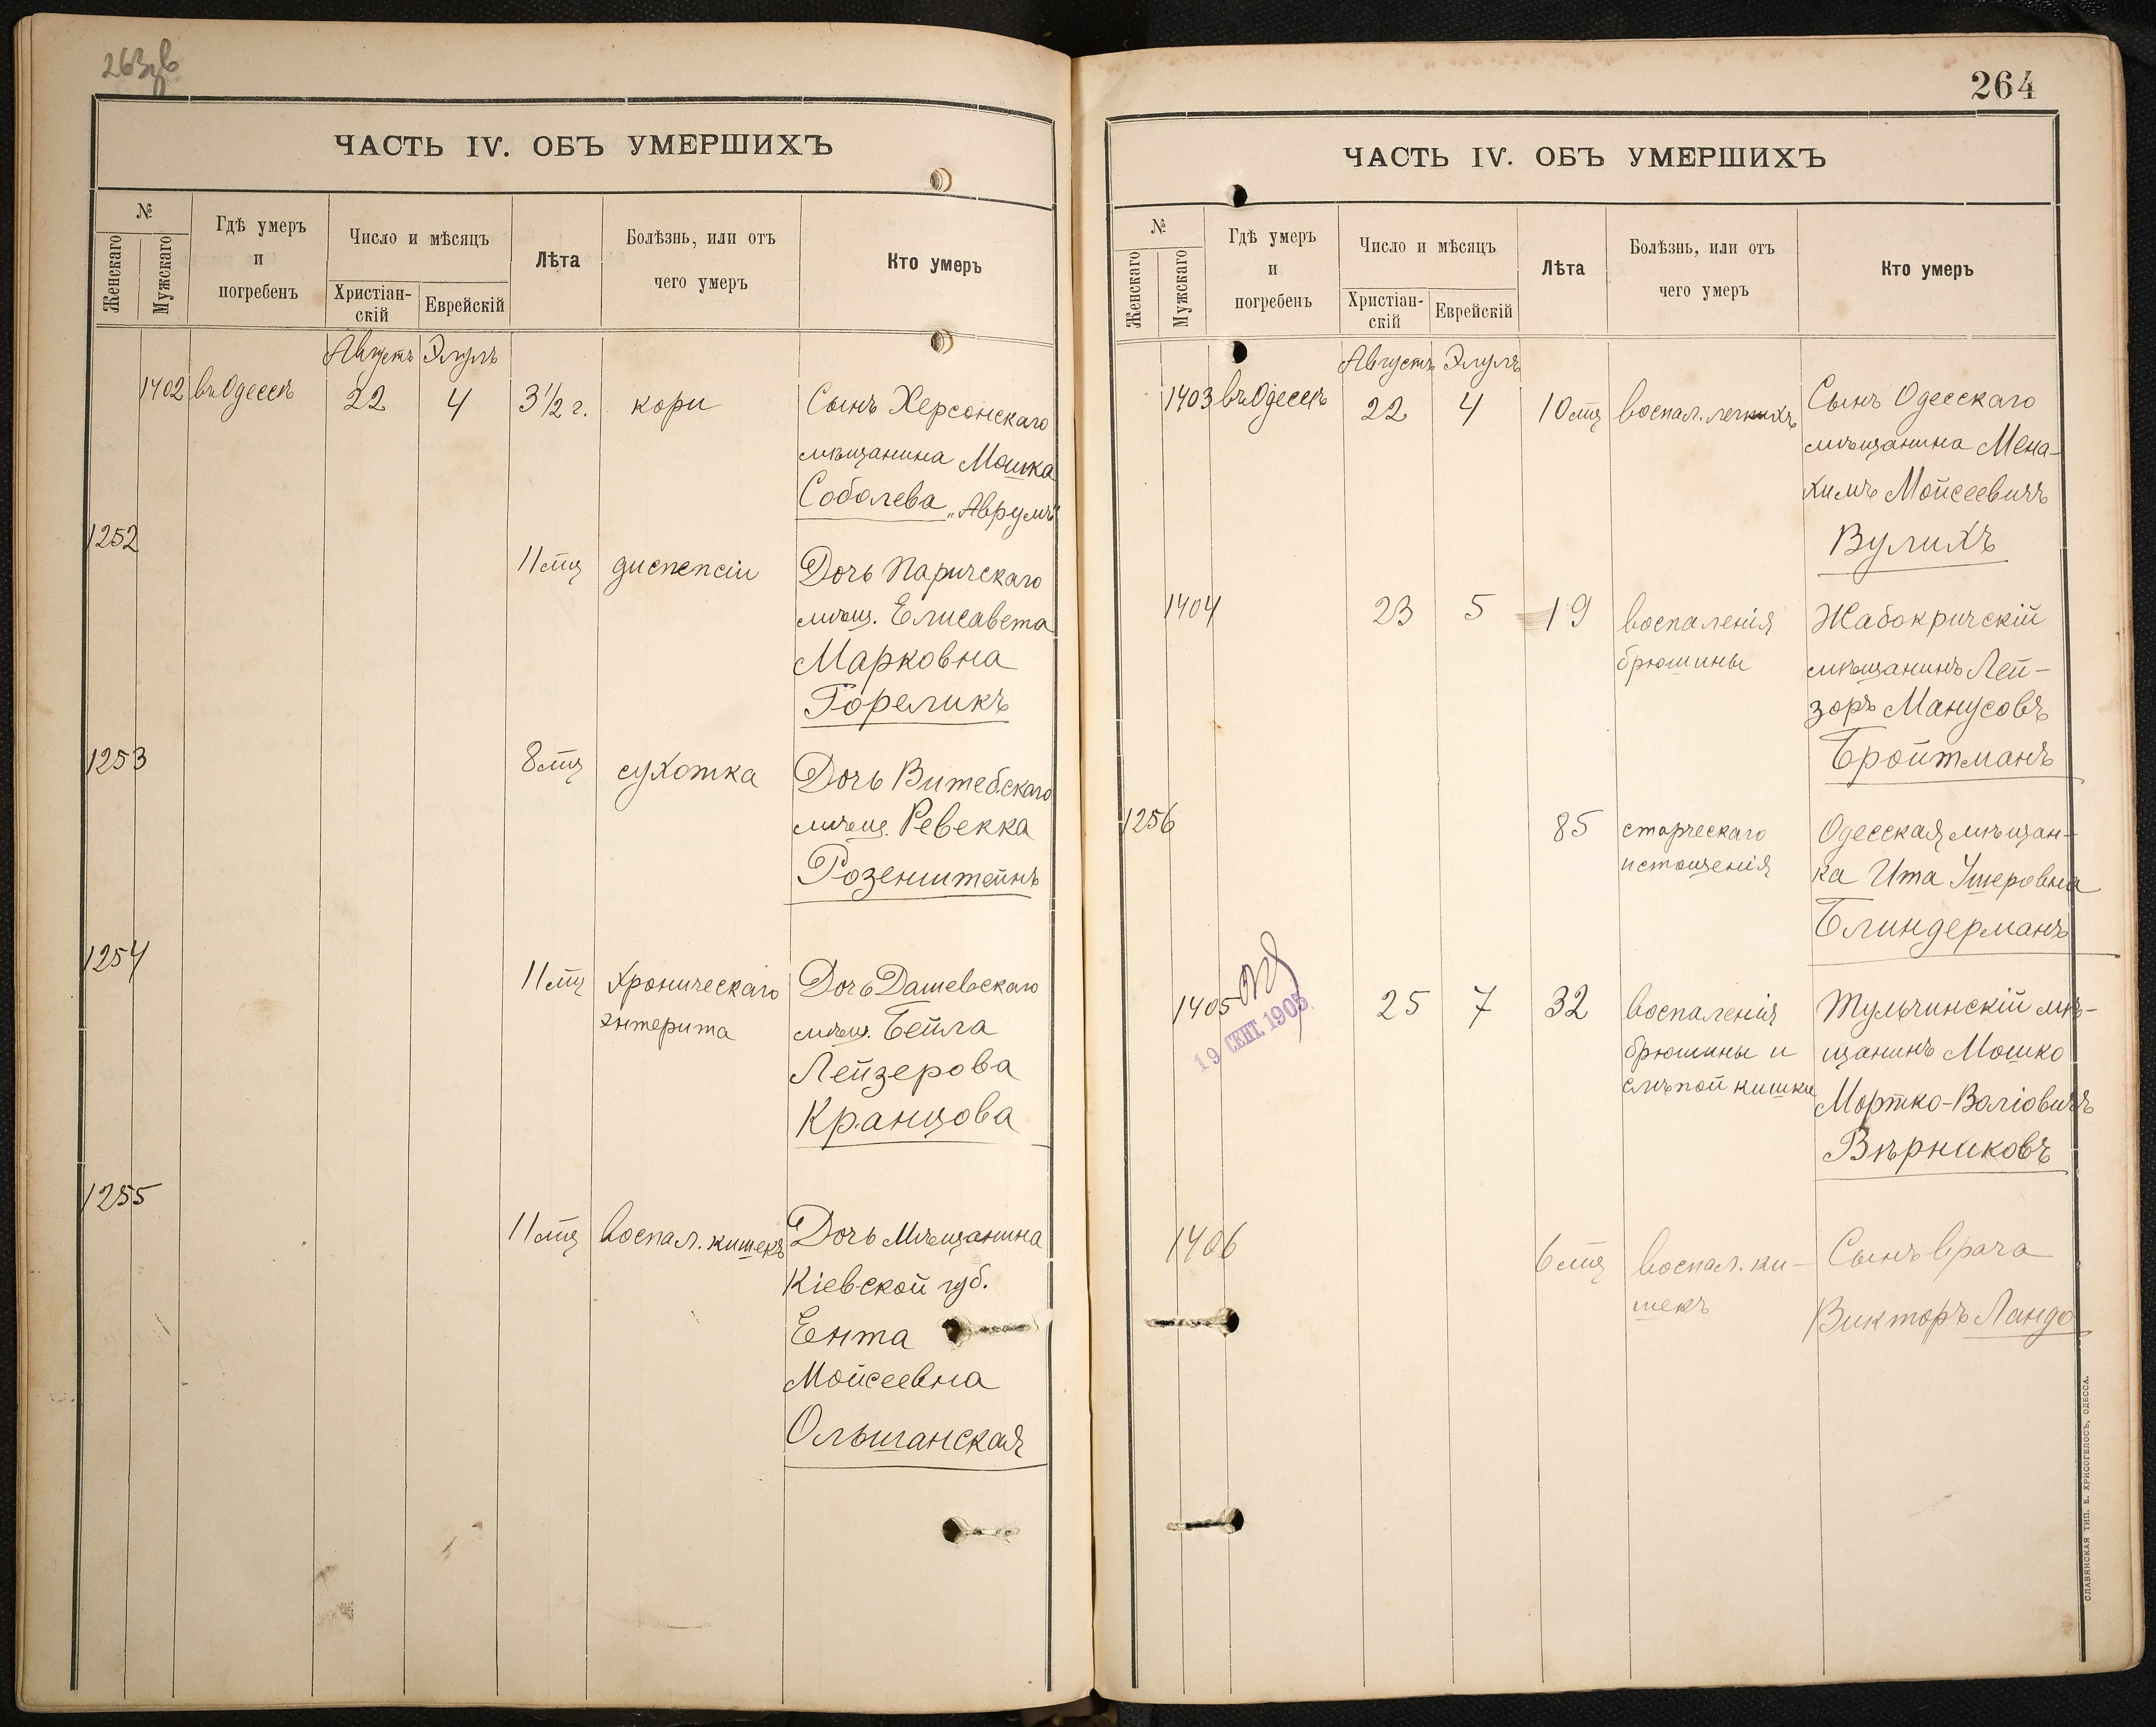 263об
ЧАСТЬ IV. ОБЪ УМЕРШИХЪ
№
Женскаго
Мужскаго
Гдѣ умеръ
и
погребенъ
Число и мѣсяцъ
Христіан-
скій
Еврейскій
Лѣта
Болѣзнь, или отъ
чего умеръ
Кто умеръ
Августъ Элулъ
1402 въ Одессѣ 22 4 3½ г. кори Сынъ Херсонскаго
мѣщанина Мошка
Соболева „Аврумъ"
1252
11 мц диспепсіи Дочь Паричскаго
мѣщ. Елисавета
Марковна
Гореликъ
1253
8 мц сухотка Дочь Витебскаго
мѣщ. Ревекка
Розенштейнъ
1254
11 мц хроническаго Дочь Дашевскаго
энтерита мѣщ. Бейла
Лейзерова
Кранцова
1255
11 мц воспал. кишекъ Дочь Мѣщанина
Кіевской губ.
Ента
Мойсеевна
Ольшанская
264
ЧАСТЬ IV. ОБЪ УМЕРШИХЪ
№
Женскаго
Мужскаго
Гдѣ умеръ
и
погребенъ
Число и мѣсяцъ
Христіан-
скій
Еврейскій
Лѣта
Болѣзнь, или отъ
чего умеръ
Кто умеръ
Августъ Элулъ
1403 въ Одессѣ 22 4 10 мц воспал. легкихъ Сынъ Одесскаго
мѣщанина Мена-
химъ Мойсеевичъ
Вулихъ
1404 23 5 19 воспаленія Жабокричскій
брюшины мѣщанинъ Лей-
зоръ Манусовъ
Бройтманъ
1256 85 старческаго Одесская мѣщан-
истощенія ка Ита Ушеровна
Блиндерманъ
1405 25 7 32 воспаленія Тульчинскій мѣ-
19 СЕНТ. 1905
брюшины и щанинъ Мошко
слѣпой кишки Мортко-Воліовичъ
Вѣрниковъ
1406 6 мц воспал. ки- Сынъ врача
шекъ Викторъ Ландо
СЛАВЯНСКАЯ ТИП. Е. ХРИСОГЕЛОСЪ, ОДЕССА.